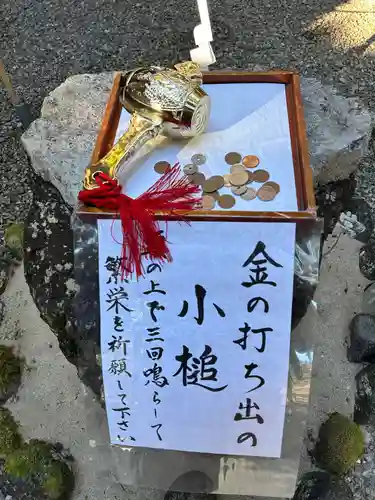 金の打ち出の
小槌
の上で三回鳴らして
繁栄を祈願して下さい